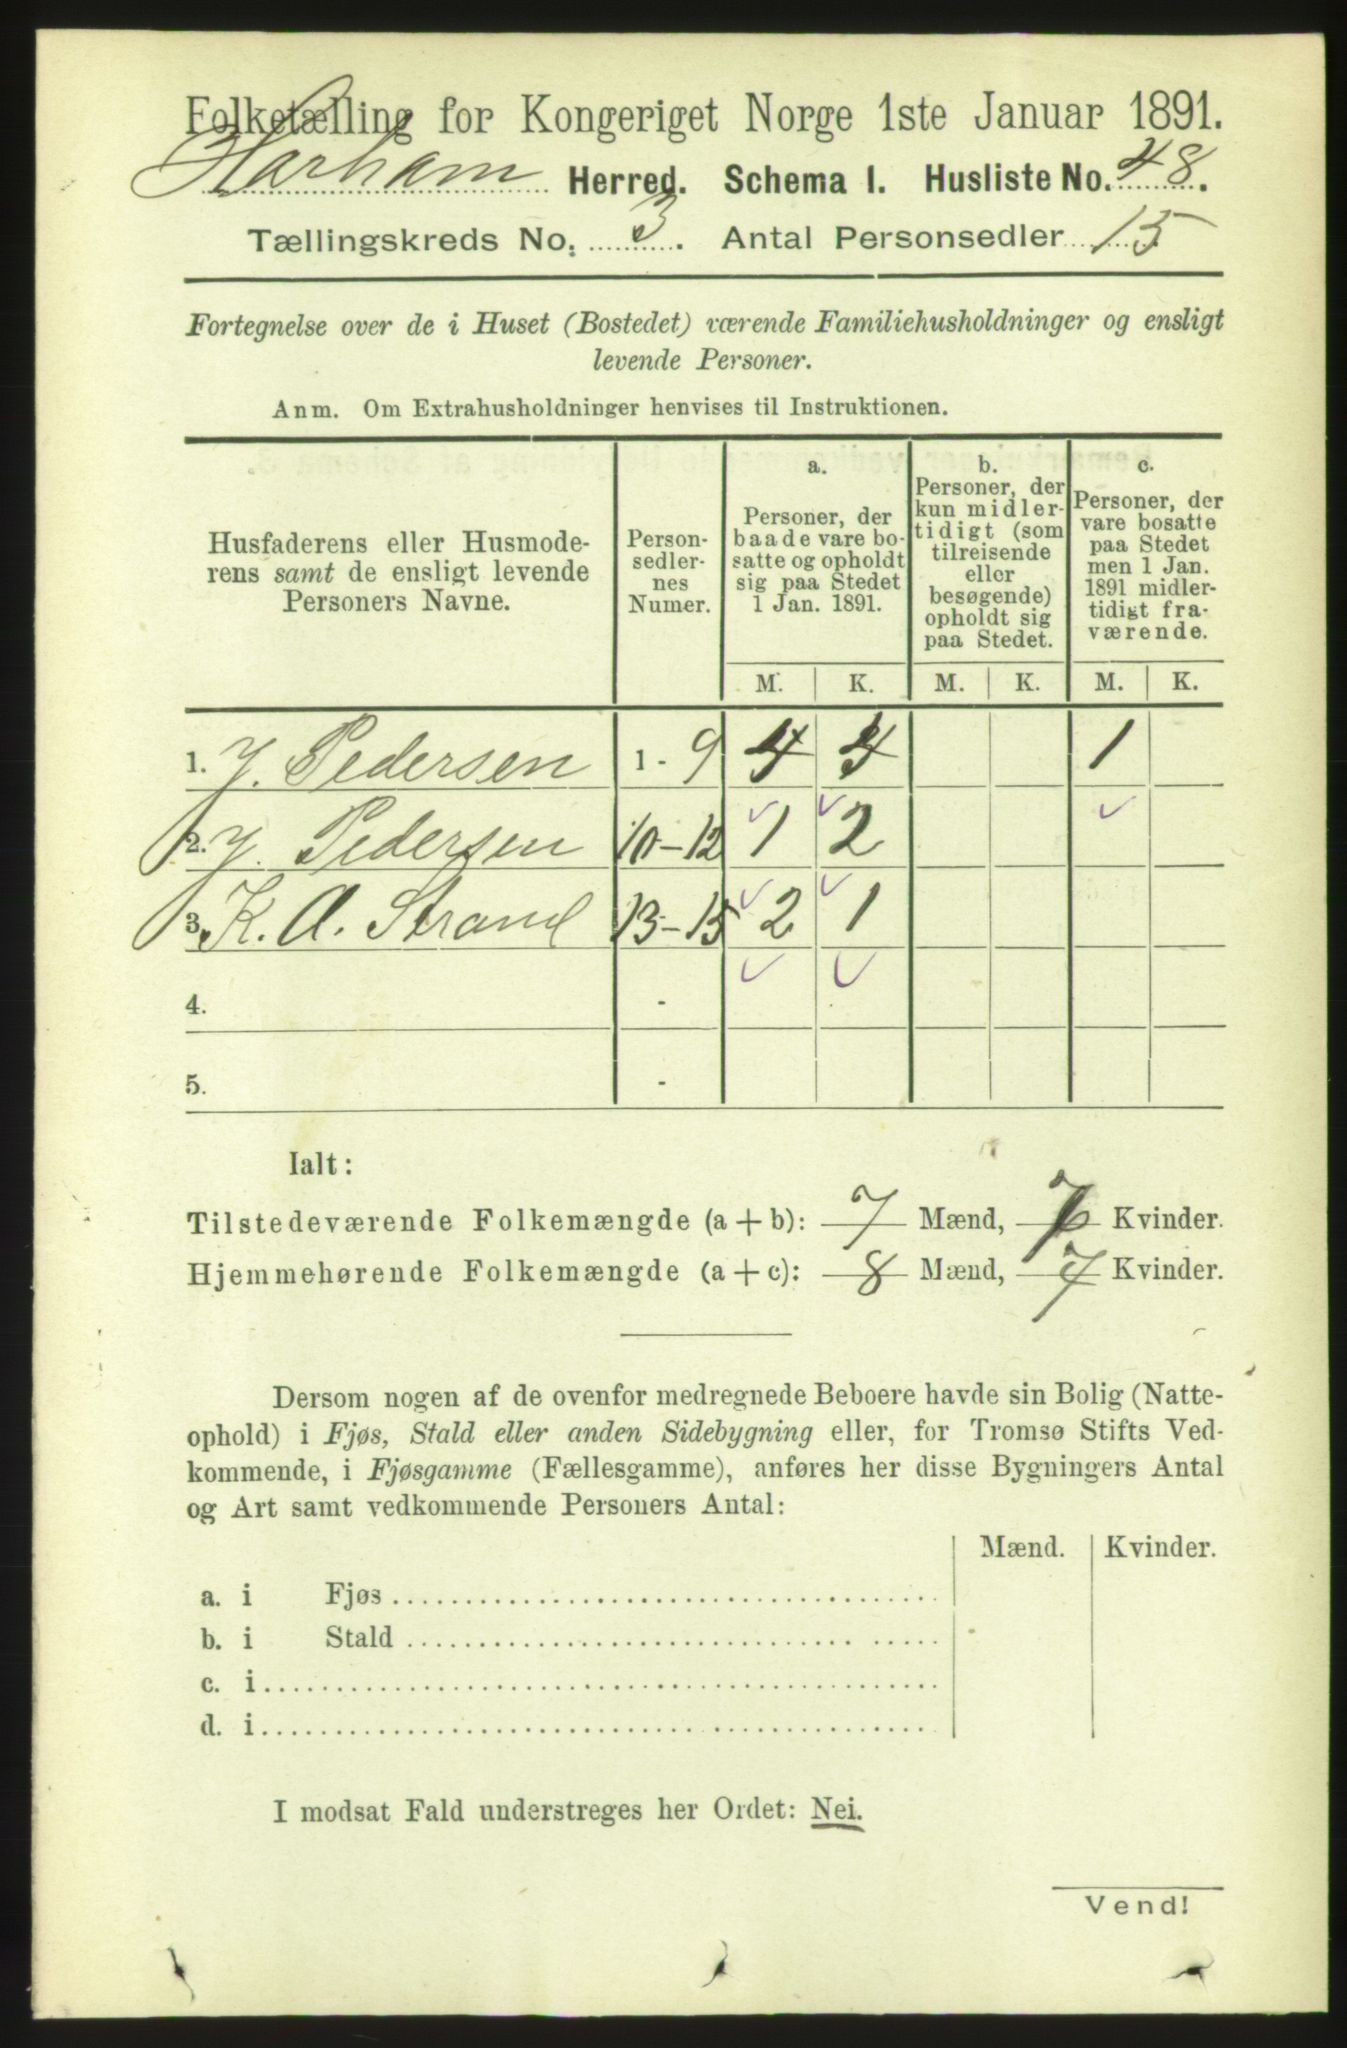 Folketælling for Kongeriget Norge 1ste Januar 1891.
Harham Herred. Schema I. Husliste No. 48.
Tællingskreds No. 3. Antal Personsedler 15
Fortegnelse over de i Huset (Bostedet) værende Familiehusholdninger og ensligt
levende Personer.
Anm. Om Extrahusholdninger henvises til Instruktionen.
Husfaderens eller Husmode-
rens samt de ensligt levende
Personers Navne.
Person-
sedler-
nes
Numer.
a.
Personer, der
baade vare bo-
satte og opholdt
sig paa Stedet
1 Jan. 1891.
b.
Personer, der
kun midler-
tidigt (som
tilreisende
eller
besøgende)
opholdt sig
paa Stedet.
c.
Personer, der
vare bosatte
paa Stedet
men 1 Jan.
1891 midler-
tidigt fra-
værende.
M. K. M. K. M. K.
1. J. Pedersen 1 - 9 4 4 1
2. J. Pedersen 10-12 1 2
3. K. A. Strand 13-15 2 1
4. -
5. -
Ialt:
Tilstedeværende Folkemængde (a + b): 7 Mænd, 7 Kvinder.
Hjemmehørende Folkemængde (a + c): 8 Mænd, 7 Kvinder.
Dersom nogen af de ovenfor medregnede Beboere havde sin Bolig (Natte-
ophold) i Fjøs, Stald eller anden Sidebygning eller, for Tromsø Stifts Ved-
kommende, i Fjøsgamme (Fællesgamme), anføres her disse Bygningers Antal
og Art samt vedkommende Personers Antal:
Mænd. Kvinder.
a. i Fjøs
b. i Stald
c. i
d. i
I modsat Fald understreges her Ordet: Nei.
Vend!